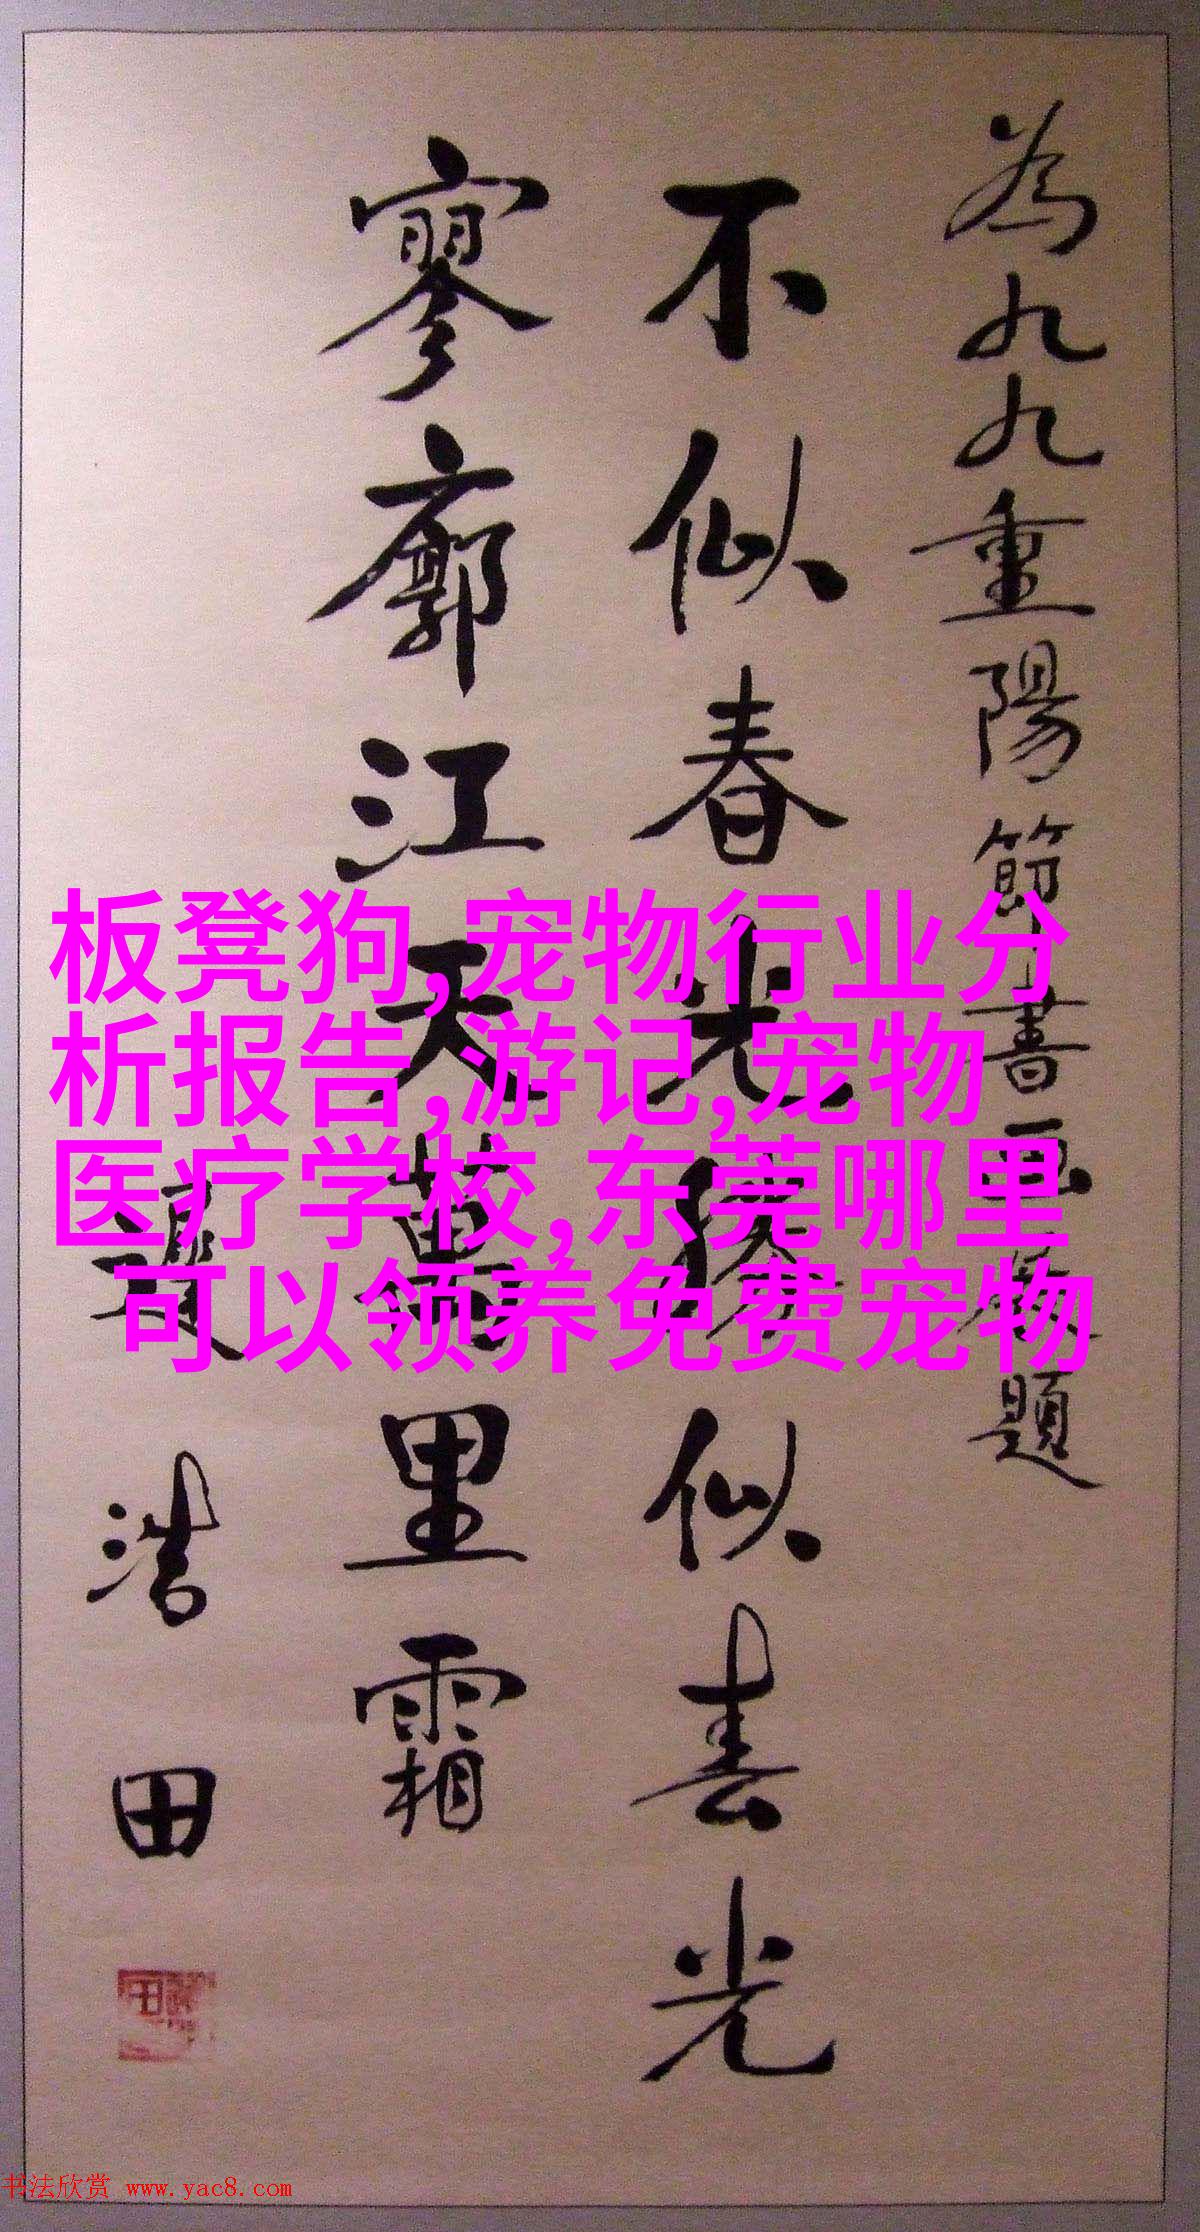 為九九重陽節書画展題
不似春光勝似春光
寥廓江天萬里霜
浩田
板凳狗,宠物行业分
析报告,游记,宠物
医疗学校,东莞哪里
可以领养免费宠物
书法欣赏 www.yac8.com